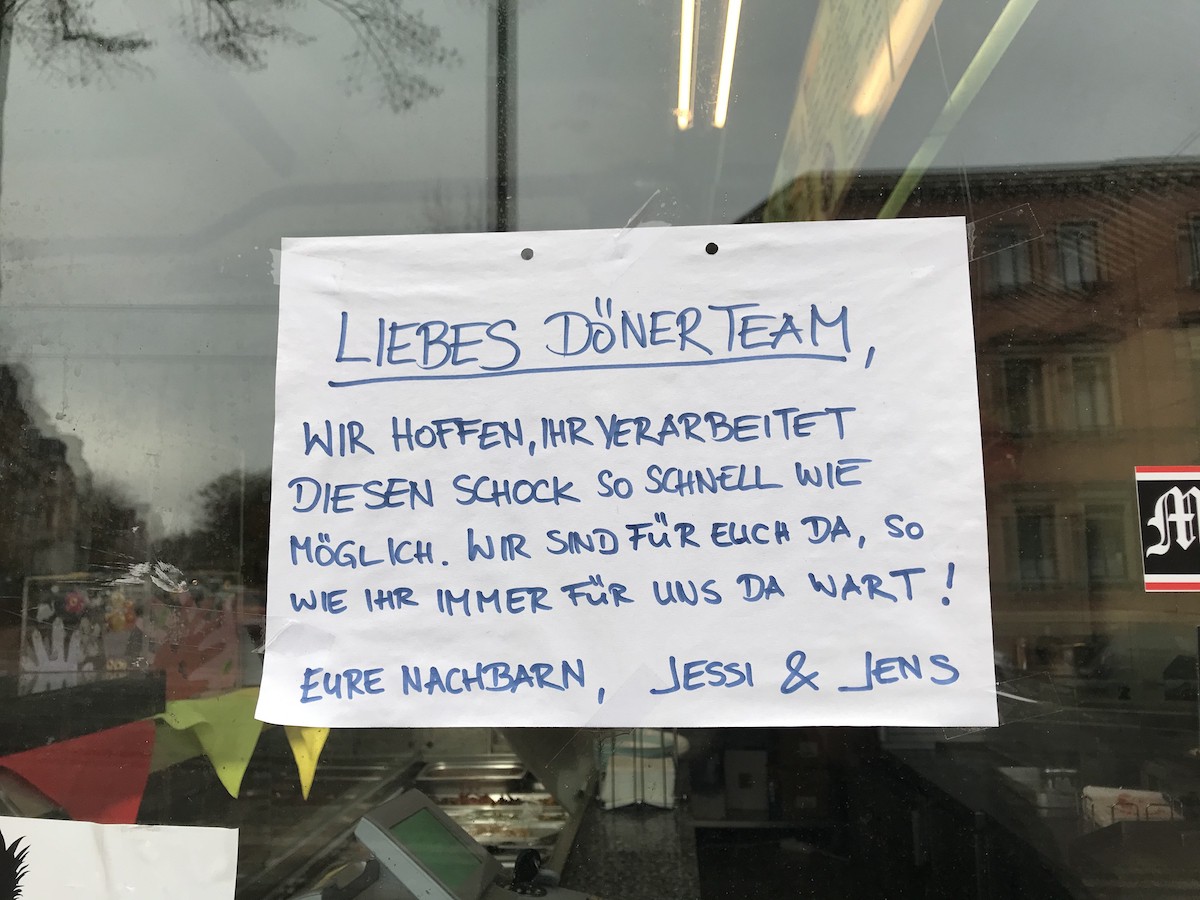 LIEBES DÖNER TEAM,
WIR HOFFEN, IHR VERARBEITET
DIESEN SCHOCK SO SCHNELL WIE
MÖGLICH. WIR SIND FÜR EUCH DA, SO
WIE IHR IMMER FÜR UNS DA WART!
EURE NACHBARN, JESSI & JENS
M